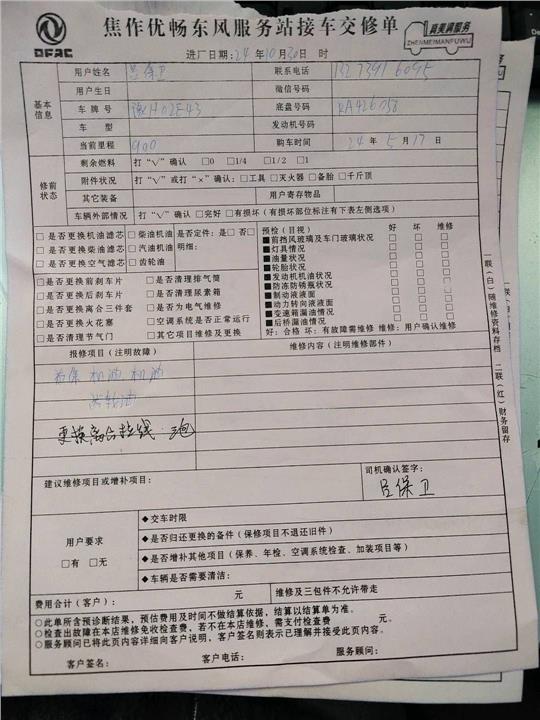 DFAC
焦作优畅东风服务站接车交修单
真美满服务
ZHENMEIMANFUWU
进厂日期: 24 年 10 月 30 日 时
基本信息
用户姓名 吕保卫 联系电话
用户生日 微信号码
车牌号 豫H02E43 底盘号码 RA426058
车型 发动机号码
当前里程 900 购车时间 24 年 5 月 17 日
修前状态
剩余燃料 打“√”确认 □0 □1/4 □1/2 □1
附件状况 打“√”或打“×”确认: □工具 □灭火器 □备胎 □千斤顶
其它装备 用户寄存物品
车辆外部情况 打“√”确认 □完好 □有损坏(有损坏部位标注有下表左侧选项)
□是否更换机油滤芯 □柴油机油 是否定件: 是□ 否□
□是否更换柴油滤芯 □汽油机油 明细:
□是否更换空气滤芯 □齿轮油
□是否更换前刹车片 □是否清理排气筒
□是否更换后刹车片 □是否清理尿素箱
□是否更换离合三件套 □是否为电气维修
□是否更换火花塞 □空调系统是否正常运行
□是否清理节气门 □其它项目维修及更换
预检(目视) 好 坏 维修
■前挡风玻璃及车门玻璃状况 □ □ □
■灯具情况 □ □ □
■油量状况 □ □ □
■轮胎状况 □ □ □
■发动机机油状况 □ □ □
■防冻防锈瓶状况 □ □ □
■制动液液面 □ □ □
■动力转向液液面 □ □ □
■变速箱漏油情况 □ □ □
■后桥漏油情况 □ □ □
好: 合格 坏: 有故障需维修 维修: 用户确认维修
一联(白)随维修资料存档 二联(红)财务留存
报修项目(注明故障) 维修内容(注明维修部件)
首保 机油 机滤
齿轮油
更换离合拉线 三包
建议维修项目或增补项目:
司机确认签字:
吕保卫
用户要求
□有 □无
◆交车时限
◆是否归还更换的备件(保修项目不退还旧件)
◆是否增补其他项目(保养、年检、空调系统检查、加装项目等)
◆车辆是否需要清洁:
费用合计(客户): 元 维修及三包件不允许带走
○此单所含预诊断结果,预估费用及时间不做结算依据,结算以结算单为准。
○检查出故障在本店维修免收检查费,若不在本店维修,需支付检查费 元。
○服务顾问已将此页内容详细向客户说明,客户签名则表示已理解并接受此页内容。
客户签名: 客户电话: 服务顾问: